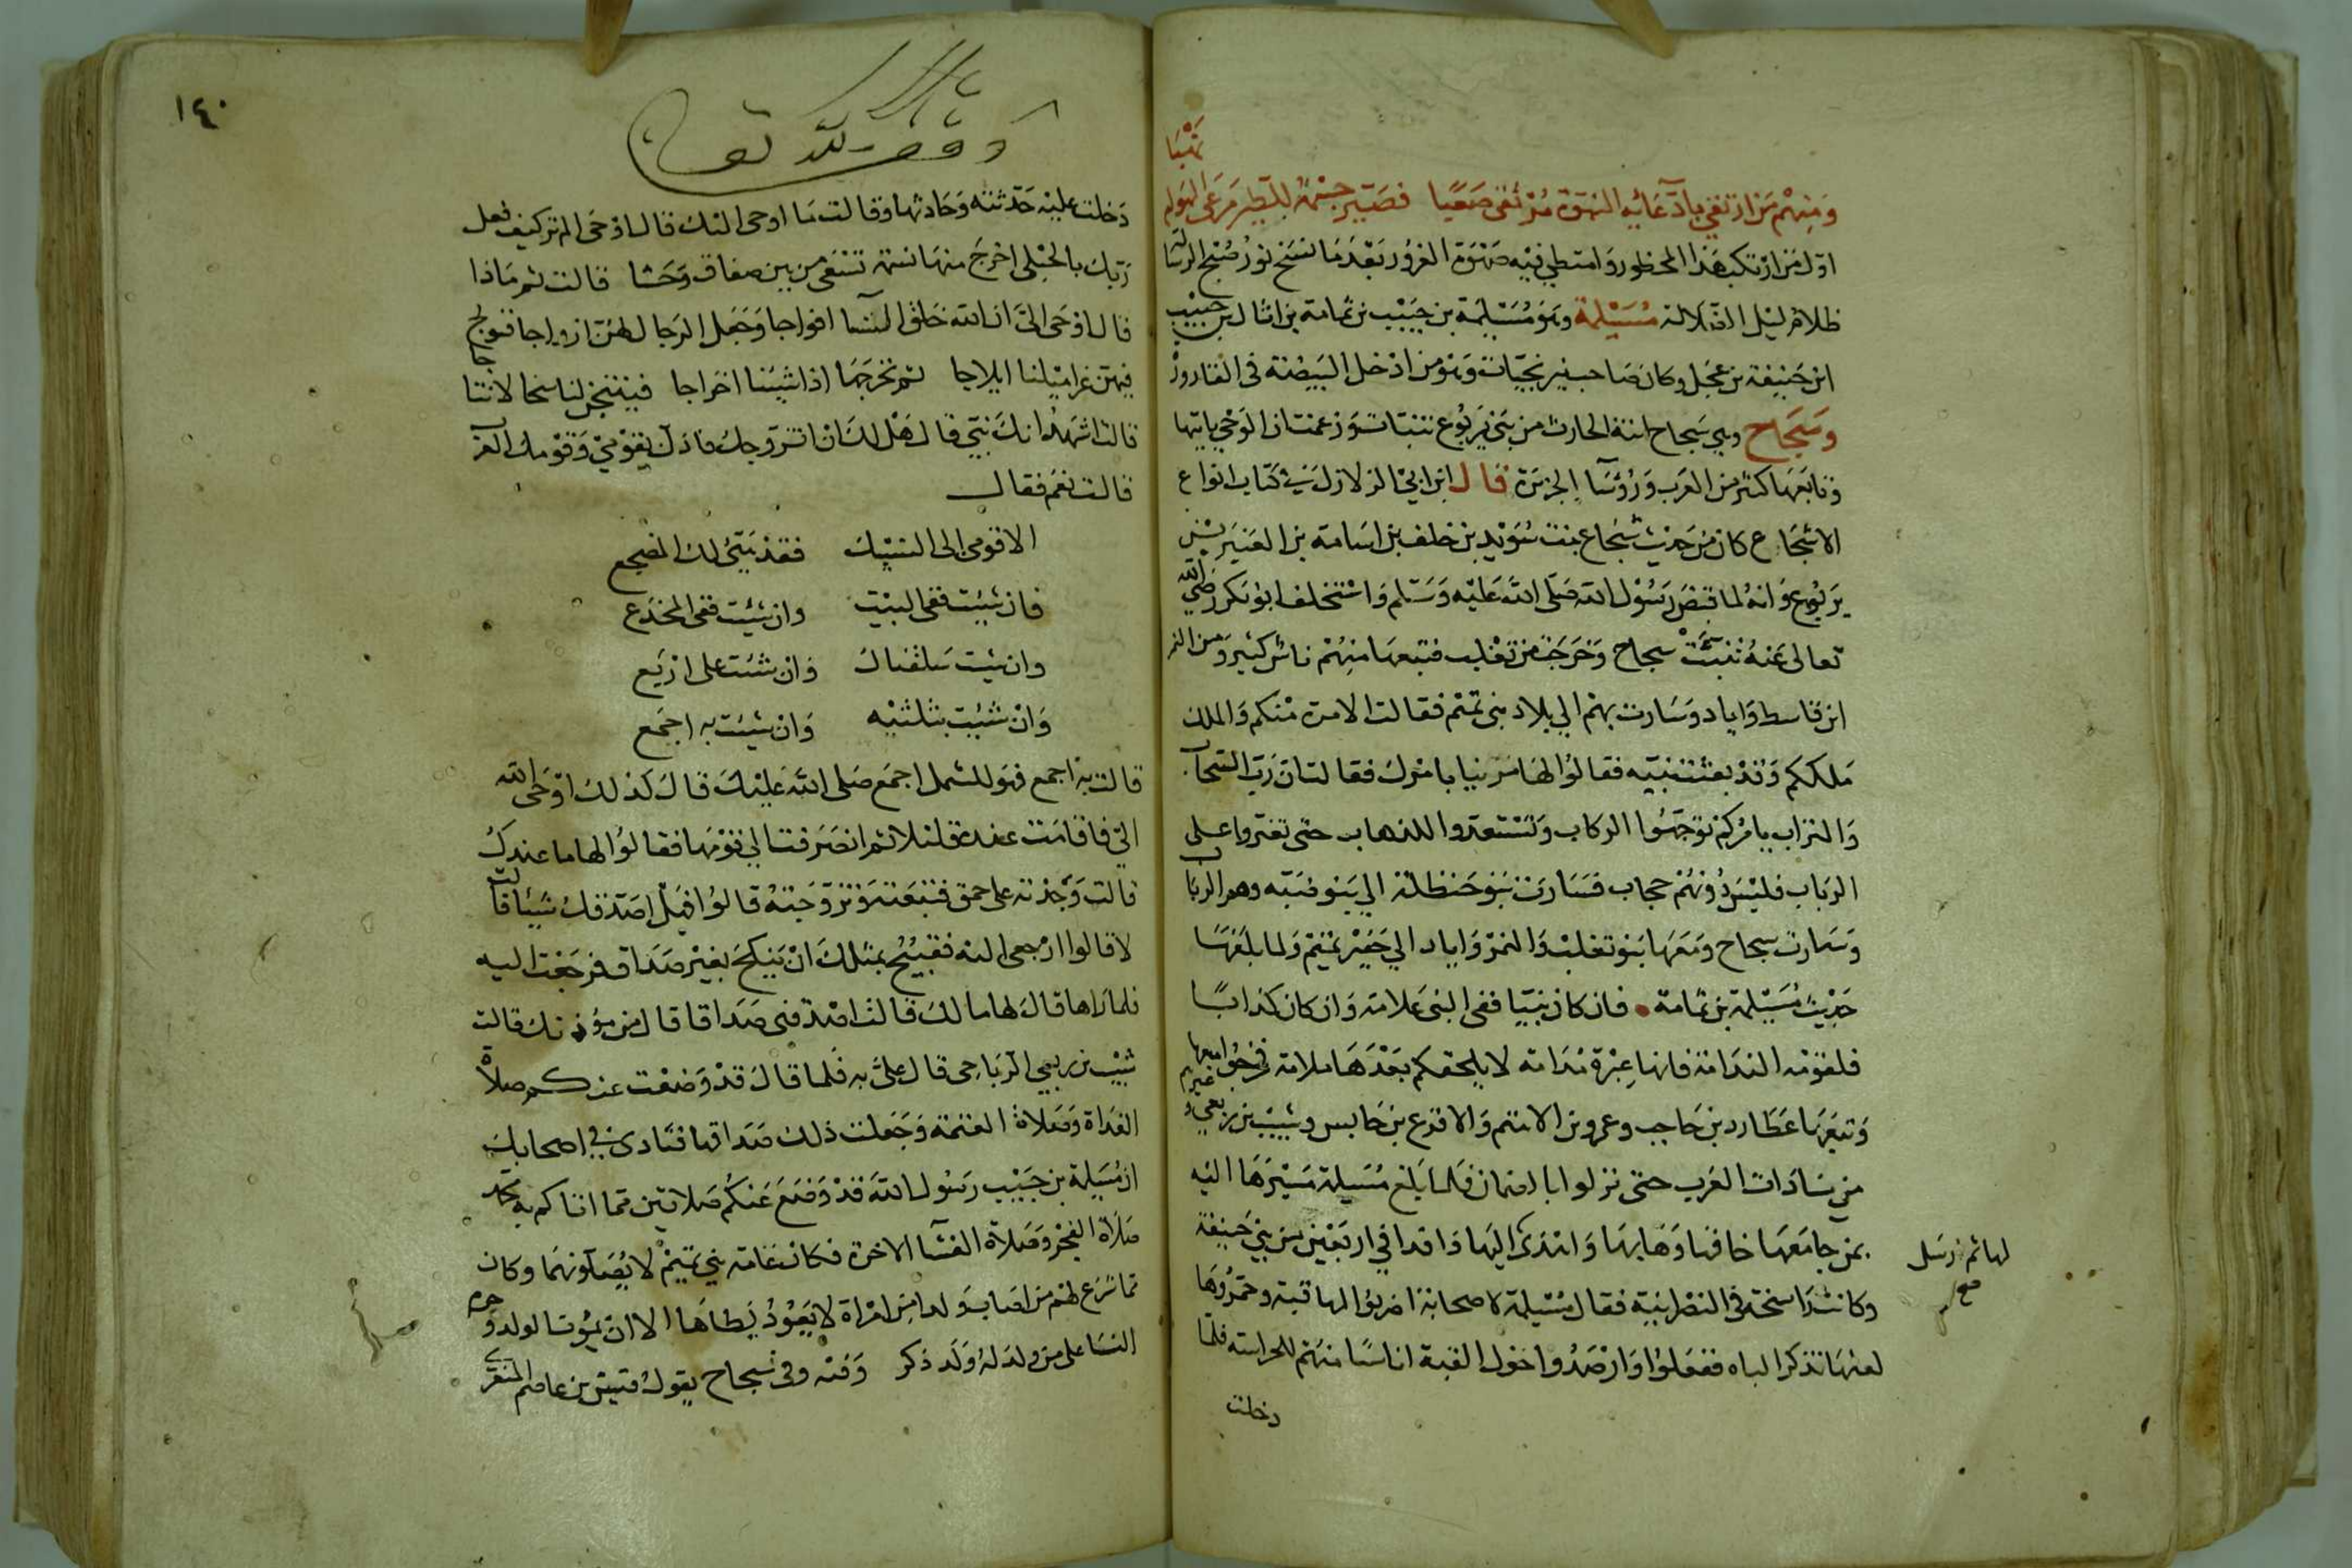 تنبيا
ومنهم من ارتقي بادعائه النبوة مرتقى صعبا فصير جسمه للطير مرعى الهوام
اول من ارتكب هذا المحظور وامتطي فيه صهوة الغرور بعد ما نسخ نور صبح الرسالة
ظلام ليل الضلالة مسيلمة وهو مسيلمة بن حبيب بن ثمامة بن اثال بن حبيب
ابن حنيفة بن عجل وكان صاحب نيرنجيات وهو من ادخل البيضة في القارورة
وسجاح وهي سجاح ابنة الحارث من بني يربوع تنبات وزعمت ان الوحي ياتيها
وتابعها كثير من العرب ورؤسا الجزيرة قال ابن ابي الزلازل في كتاب انواع
الاسجاع كان من حديث سجاع بنت سويد بن خلف بن اسامة بن العنبر بن
يربوع وانه لما قبض رسول الله صلى الله عليه وسلم واستخلف ابو بكر رضي الله
تعالى عنه تنبت سجاح وخرجت من تغلب فتبعها منهم ناس كثير ومن النمر
ابن قاسط واياد وسارت بهم الي بلاد بني تميم فقالت الامرة منكم والملك
ملككم وقد بعثت نبيه فقالوا لها مرينا بامرك فقالت ان رب السحاب
والتراب يامركم توجهوا الركاب وتستعدوا للذهاب حتى تغيروا على
الرباب فليس دونهم حجاب فسارت بنو حنظلة الي بني ضبه وهم الرباب
وسارت سجاح ومعها بنو تغلب والنمر واياد الي حفير تميم ولما بلغها
حديث مسيلمة بن ثمامة فان كان نبيا ففي النبي علامة وان كان كذابا
فلقومه الندامة فانها عبرة مدامه لا يلحقكم بعدها ملامة فخرجوا معها
وتبعها عطارد بن حاجب وعمرو بن الاهتم والاقرع بن حابس وشبيب بن ربعي وغيرهم
من سادات العرب حتى نزلوا بالصمان فلما بلغ مسيلمة مسيرها اليه
بمن جامعها خافها وهابها واهتدى اليها وافدا في اربعين من بني حنيفة
لها ثم ارسل
صح
وكانت راسخة في النصرانية فقال مسيلمة لاصحابه اضربوا لها قبة وجمروها
لعلها تذكر الباه ففعلوا وارصدوا حول القبة اناسا منهم للحراسة فلما
دخلت
١٤٠
وقف لله تعالى
دخلت عليه حدثته وحادثها وقالت ما اوحى اليك قال اوحى الم تر كيف فعل
ربك بالحبلى اخرج منها نسمة تسعى من بين صفاق وحشا قالت ثم ماذا
قال اوحى الي ان الله خلق النسا افواجا وجعل الرجال لهن ازواجا فنولج
فيهن غراميلنا ايلاجا ثم نخرجها اذا شينا اخراجا فينتجن لنا سخالا نتاجا
قالت اشهد انك نبي قال هل لك ان اتزوجك فاذل بقومي وقومك العرب
قالت نعم فقال
الا قومي الى النيك فقد هيئ لك المضجع
فان شيت ففي البيت وان شيت ففي المخدع
وان شيت سلقناك وان شئت على اربع
وان شيت بثلثيه وان شيت به اجمع
قالت به اجمع فهو للشمل اجمع صلى الله عليك قال كذلك اوحى الله
الي فاقامت عنده ثلاثا ثم انصرفت الي قومها فقالوا لها ما عندك
قالت وجدته على حق فتبعته وتزوجته قالوا فهل اصدقك شيئا قالت
لا قالوا ارجعي اليه فقبيح بمثلك ان ينكح بغير صداق فرجعت اليه
فلما راها قال لها مالك قالت اصدقني صداقا قال من مؤذنك قالت
شبيب بن ربعي الرياحي قال علي به فلما قال قد وضعت عنكم صلاة
الغداة وصلاة العتمة وجعلت ذلك صداقها فنادى في اصحابك
ان مسيلمة بن حبيب رسول الله قد وضع عنكم صلاتين مما اتاكم به محمد
صلاة الفجر وصلاة العشا الاخرة فكان عامة بني تميم لا يصلونهما وكان
مما شرع لهم من اصاب ولدا من امراة لا يعود يطاها الا ان يموت الولد وحرم
النسا على من ولد له ولد ذكر وفيه وفي سجاح يقول قيس بن عاصم المنقري